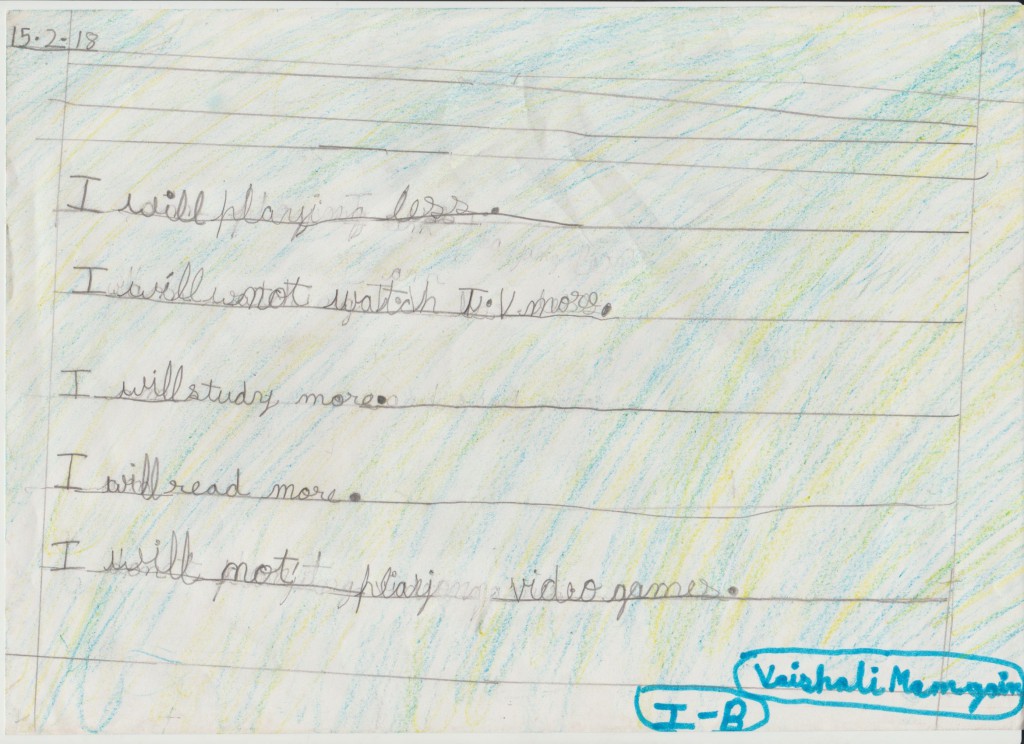 15.2.18
I will playing less.
I will not watch T.V. more.
I will study more.
I will read more.
I will not play video games.
Vaishali Mamgain
I-B